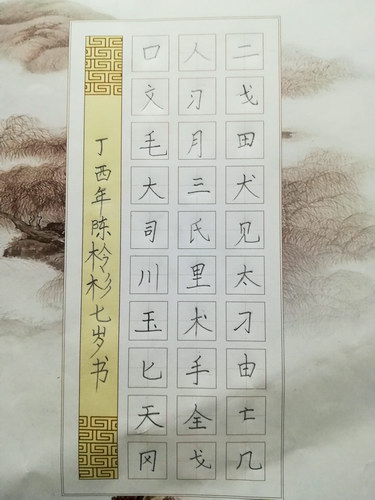 二戈田犬见太刁由几
人习月三氏里术手全戈
口文毛大司川玉匕天冈
丁西年陈柃杉七岁书